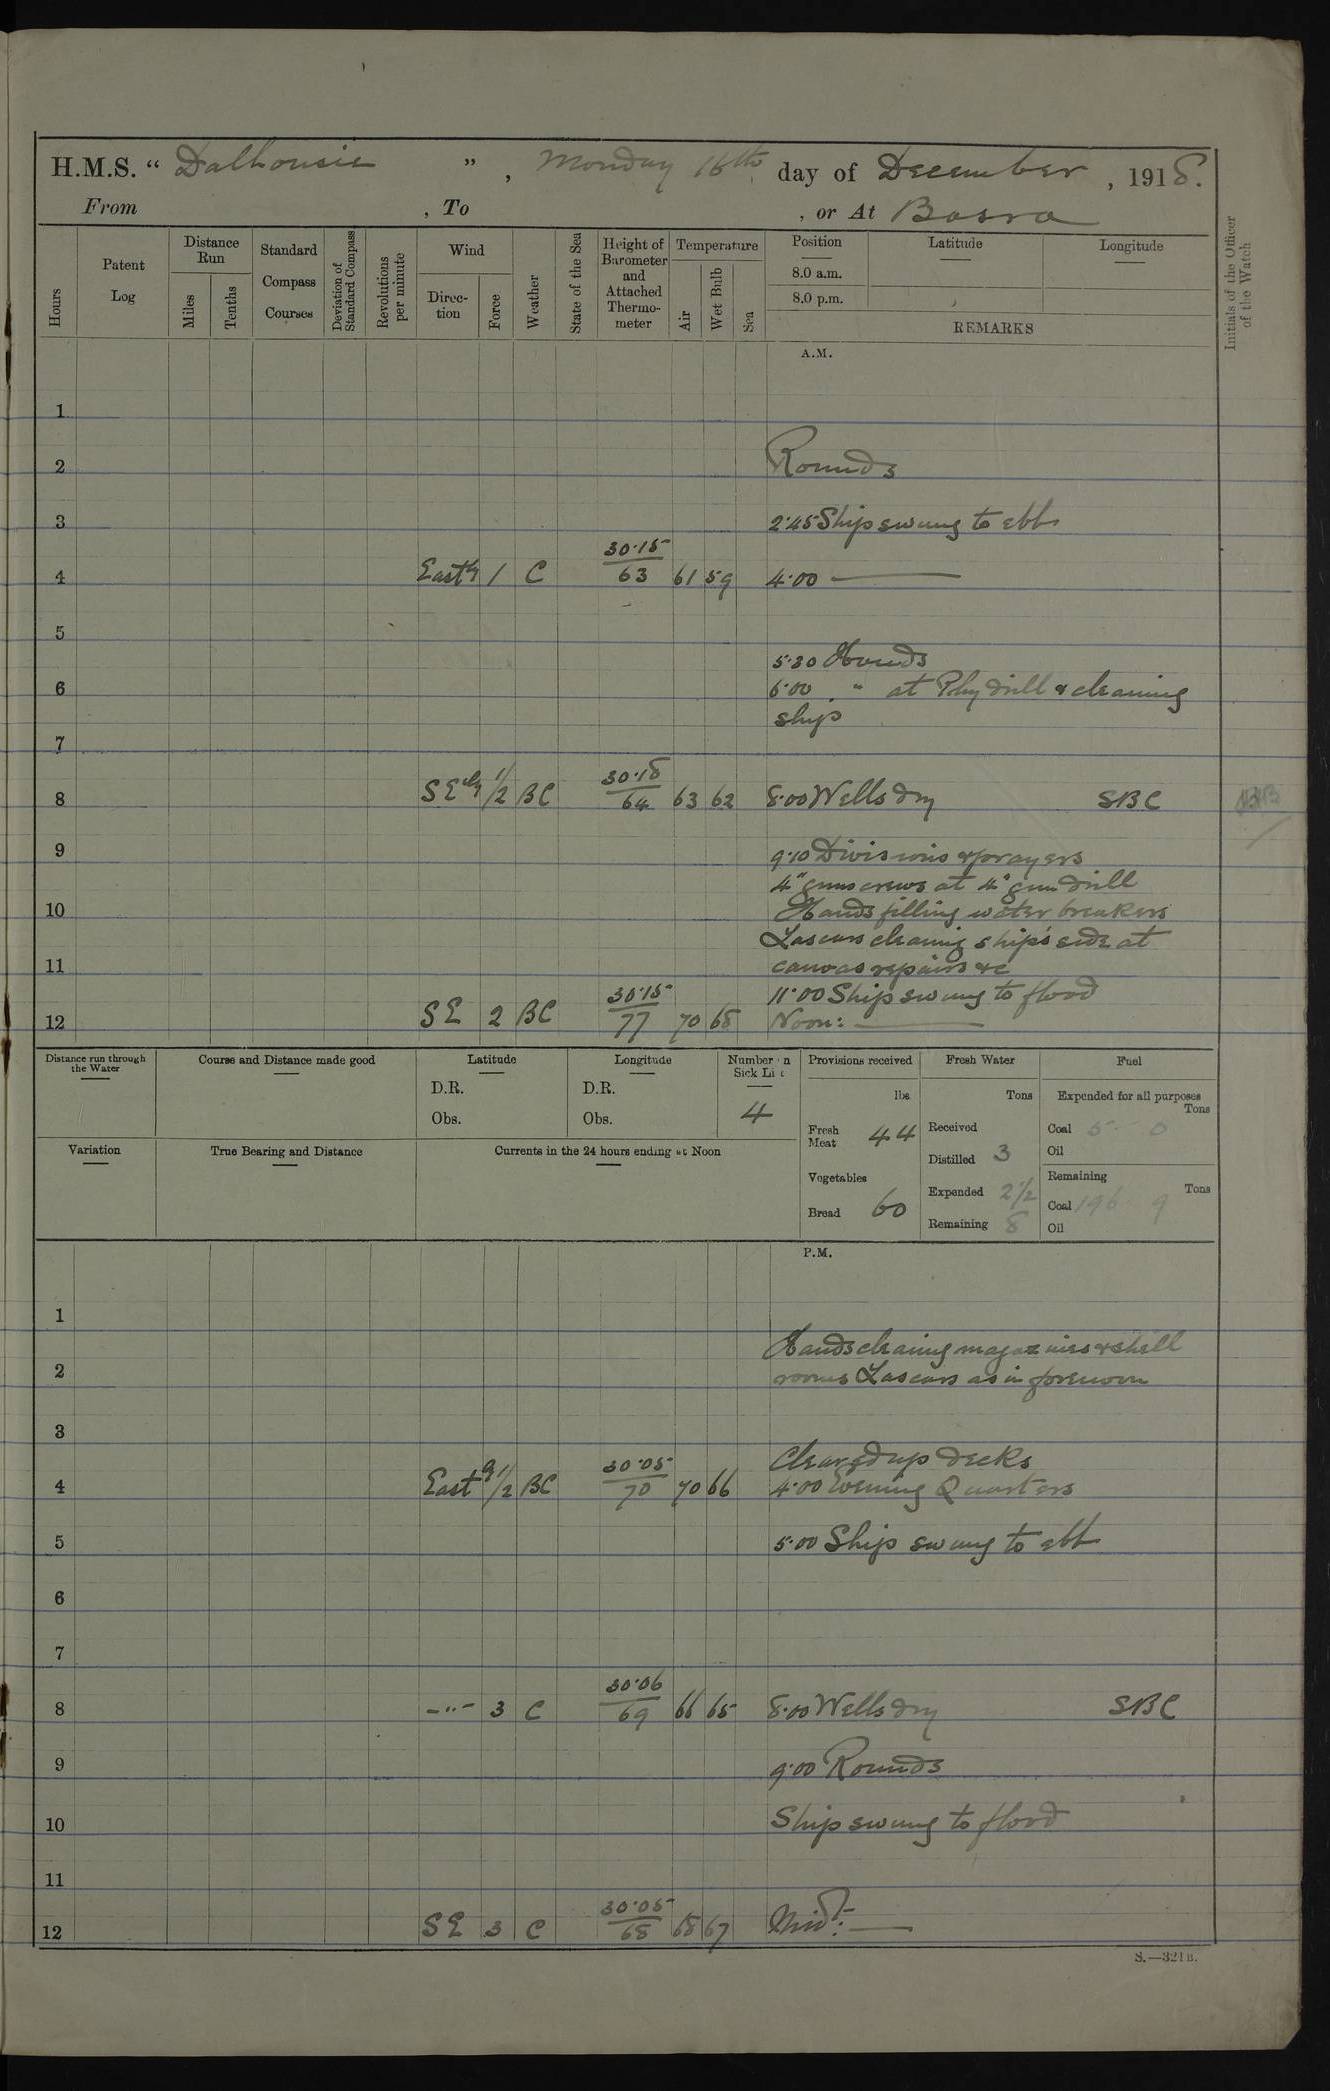 H.M.S. “ Dalhousie ” , Monday 16th day of December , 1918.
From , To , or At Basra
Hours
Patent Log
Distance Run
Miles
Tenths
Standard Compass Courses
Deviation of Standard Compass
Revolutions per minute
Wind
Direc-tion
Force
Weather
State of the Sea
Height of Barometer and Attached Thermo-meter
Temperature
Air
Wet Bulb
Sea
Position
8.0 a.m.
8.0 p.m.
Latitude
Longitude
REMARKS
Initials of the Officer of the Watch
A.M.
1
2 Rounds
3 2·45 Ship swung to ebb
30·15
4 Eastly 1 C 63 61 59 4·00 —
5
5·30 Hands
6 6·00 " at Phy drill & cleaning
ship
7
30·18
8 SEly 1/2 BC 64 63 62 8·00 Wells dry SBC
9 9·10 Divisions & prayers
4" guns crews at 4" gun drill
10 Hands filling water breakers
Lascars cleaning ship's side at
11 canvas repairs &c
30·15 11·00 Ship swung to flood
12 SE 2 BC 77 70 68 Noon: —
Distance run through the Water
Course and Distance made good
Latitude
D.R.
Obs.
Longitude
D.R.
Obs.
Number on Sick List
4
Provisions received
lbs
Fresh Meat 44
Vegetables
Bread 60
Fresh Water
Tons
Received
Distilled 3
Expended 2 1/2
Remaining 8
Fuel
Expended for all purposes
Tons
Coal 5 0
Oil
Remaining
Tons
Coal 196 9
Oil
Variation
True Bearing and Distance
Currents in the 24 hours ending at Noon
P.M.
1
Hands cleaning magazines & shell
2 rooms Lascars as in forenoon
3
30·05 Cleared up decks
4 Eastly 1/2 BC 70 70 66 4·00 Evening Quarters
5 5·00 Ship swung to ebb
6
7
30·06
8 –"– 3 C 69 66 65 8·00 Wells dry SBC
9 9·00 Rounds
10 Ship swung to flood
11
30·05
12 SE 3 C 68 68 67 Midt: —
S.—321B.